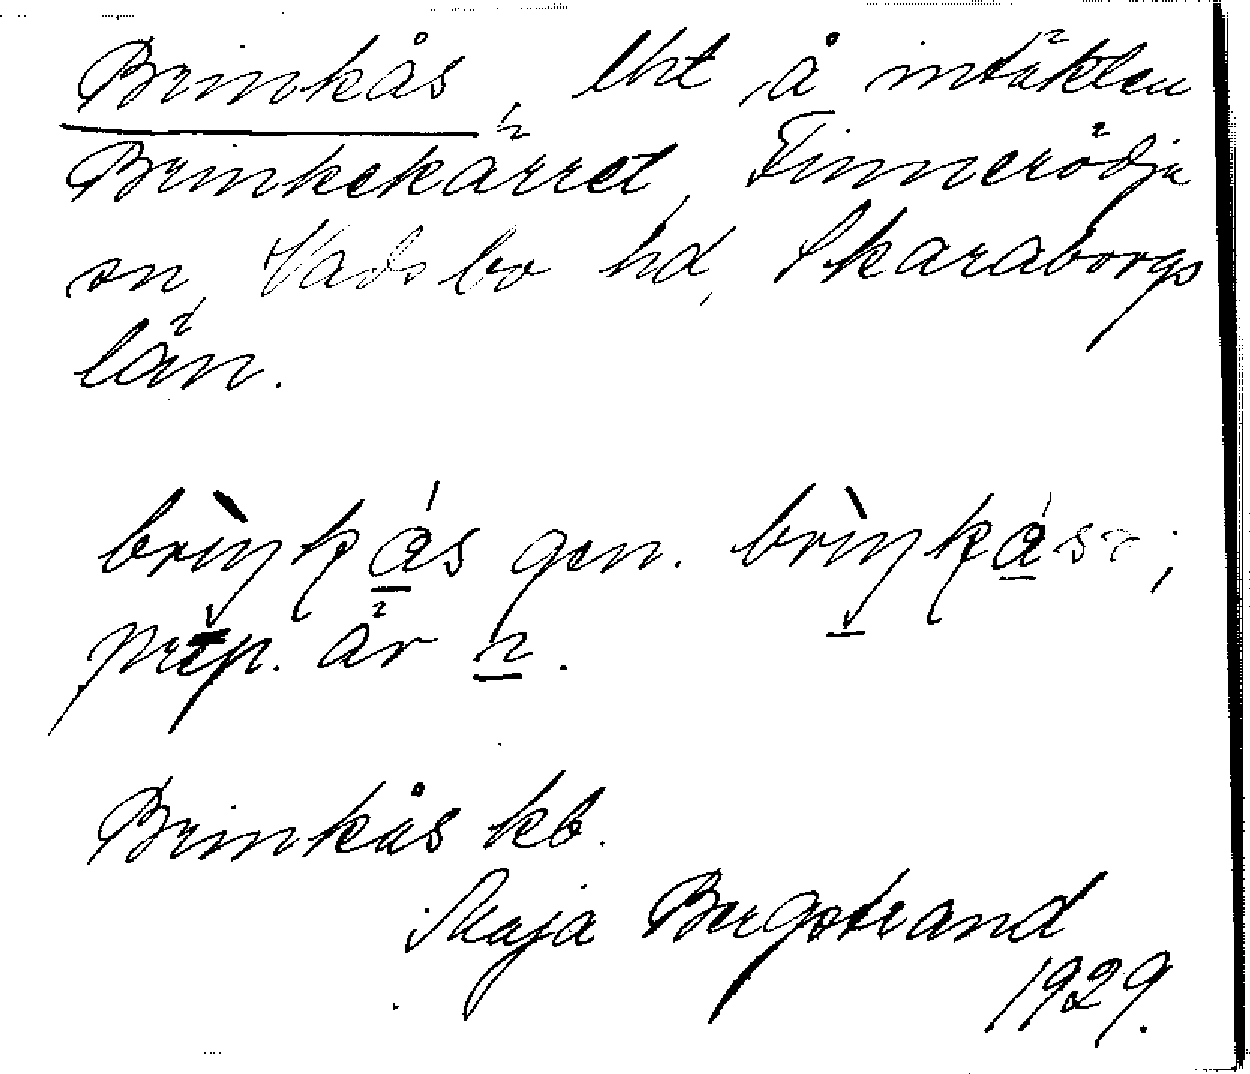 Brinkås, lht å intäkten
Brinkekärret, Finnerödja
sn, Vadsbo hd, Skaraborgs
län.
brìŋkás gen. brìŋkás;
prep. är
Brinkås kb.
Maja Bergstrand
1929.